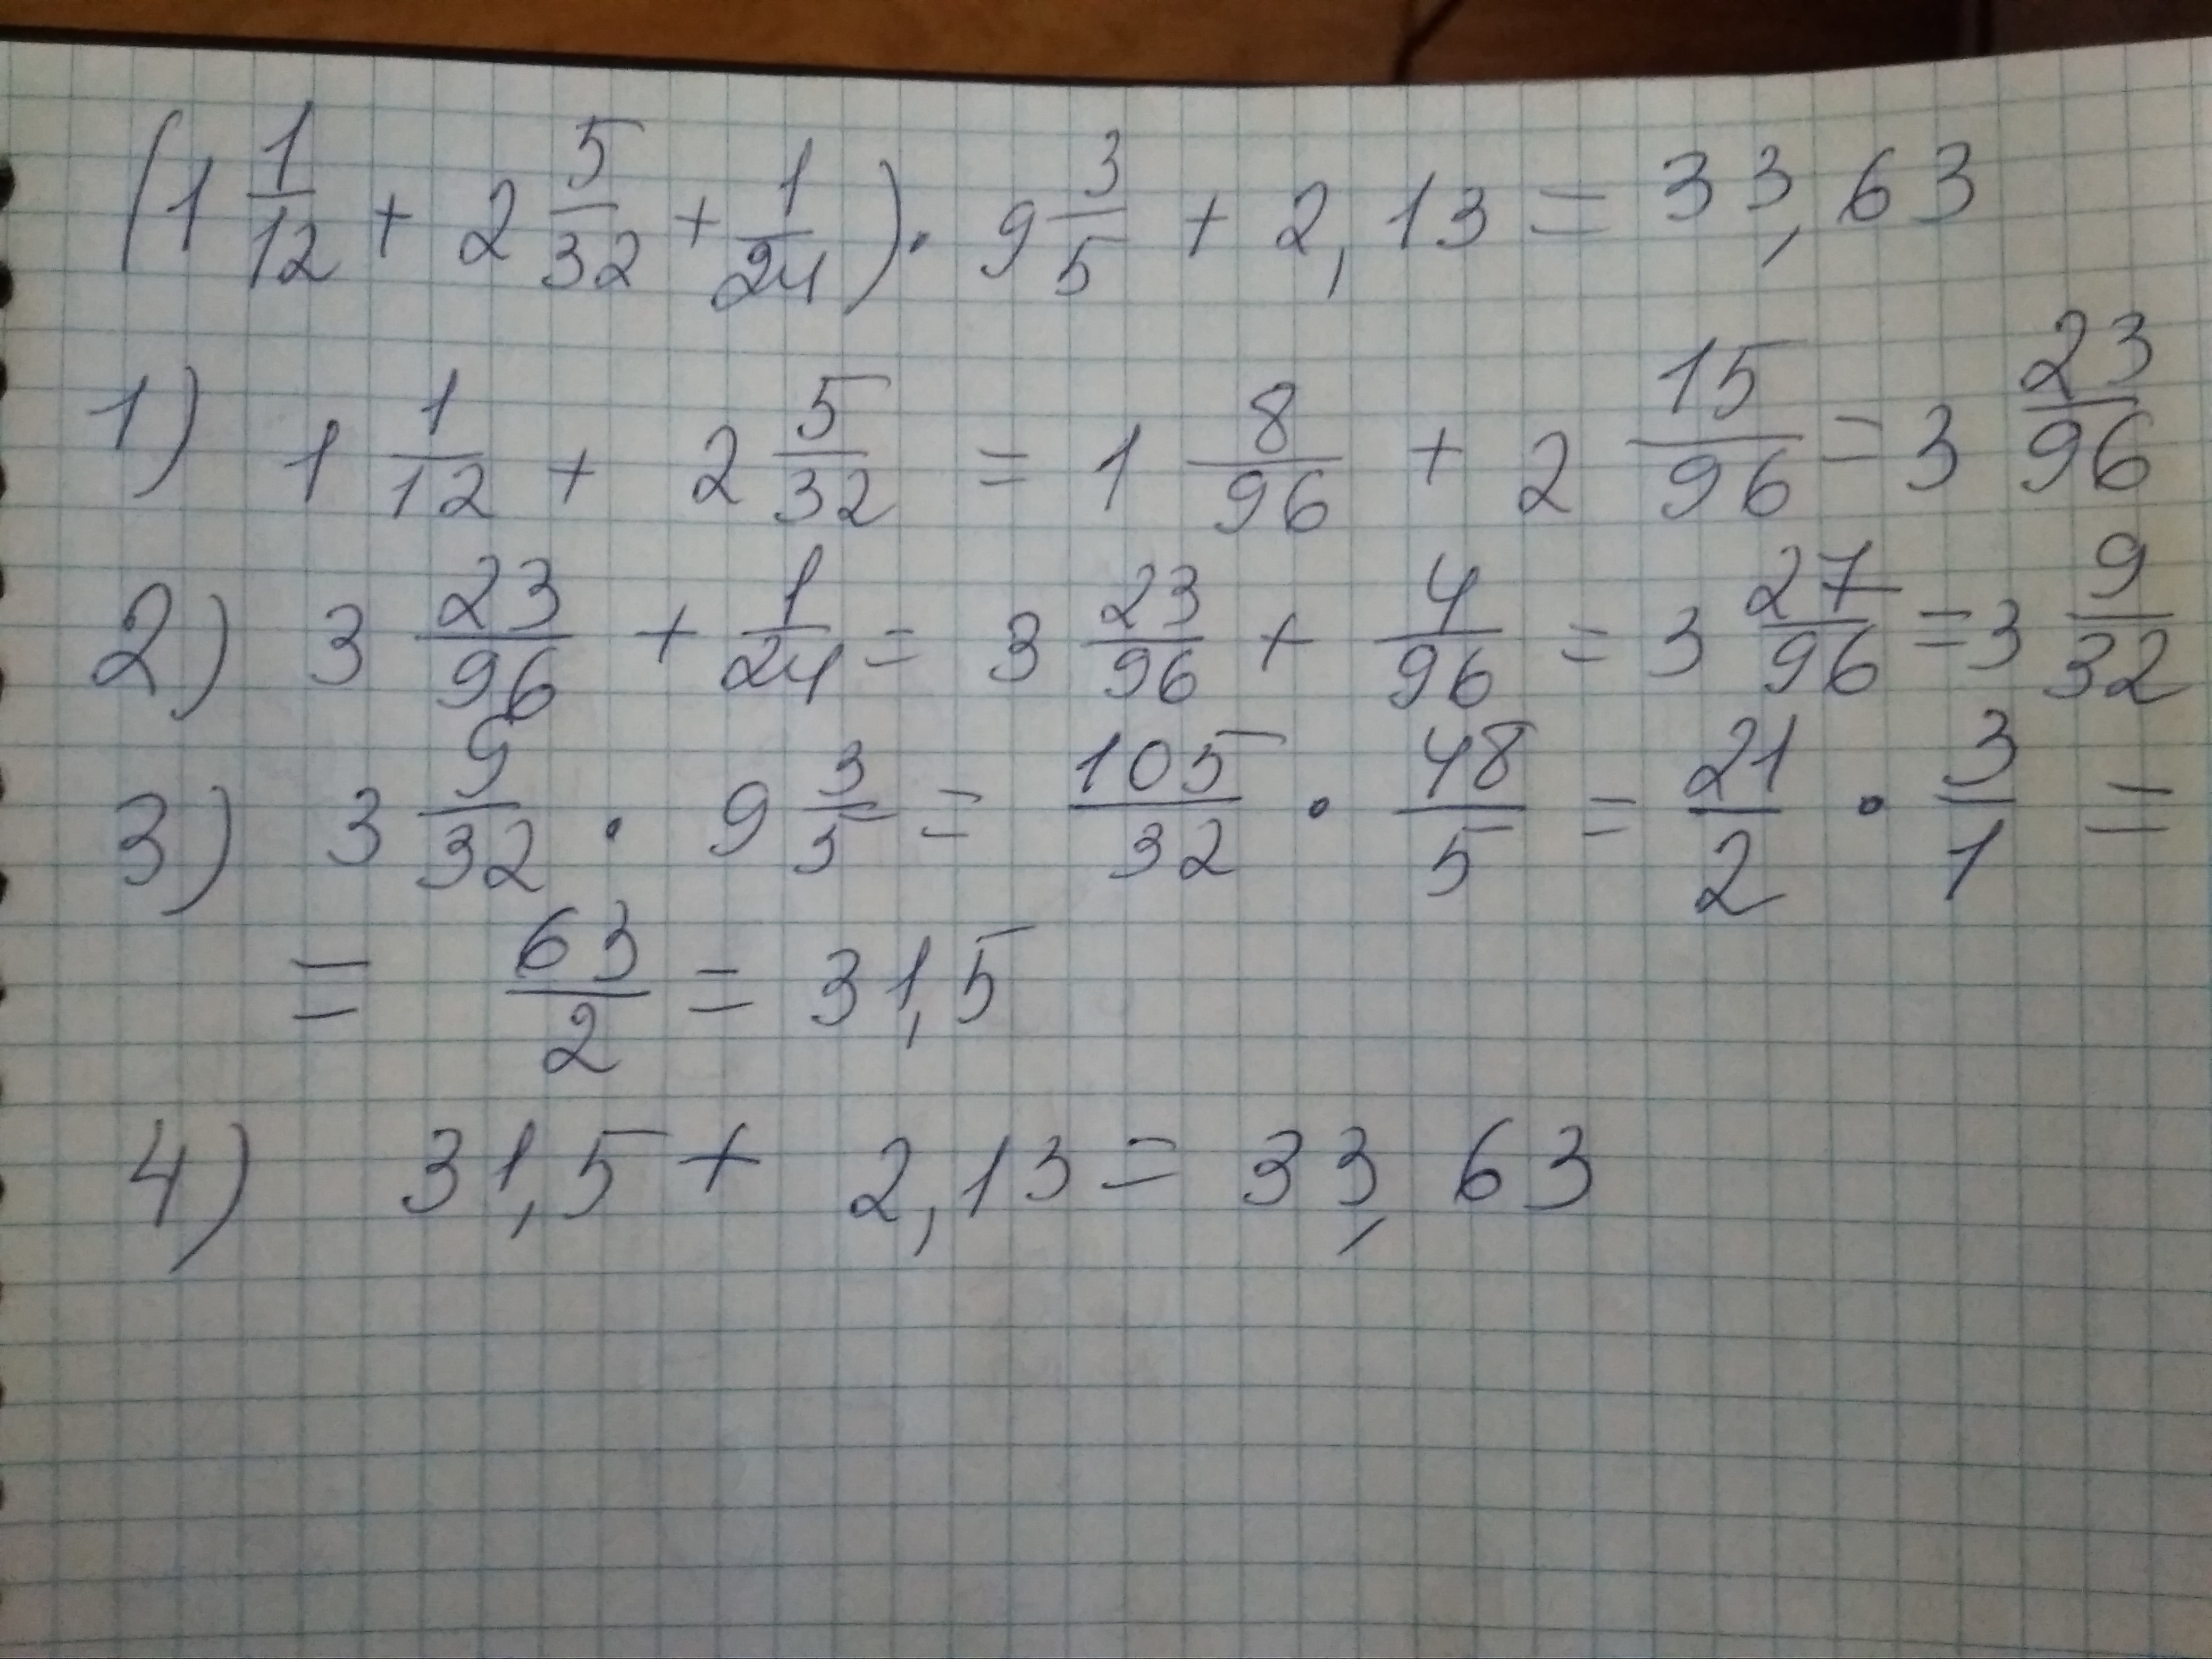 (1 1/12 + 2 5/32 + 1/24) · 9 3/5 + 2,13 = 33,63
1) 1 1/12 + 2 5/32 = 1 8/96 + 2 15/96 = 3 23/96
2) 3 23/96 + 1/24 = 3 23/96 + 4/96 = 3 27/96 = 3 9/32
3) 3 9/32 · 9 3/5 = 105/32 · 48/5 = 21/2 · 3/1 =
= 63/2 = 31,5
4) 31,5 + 2,13 = 33,63